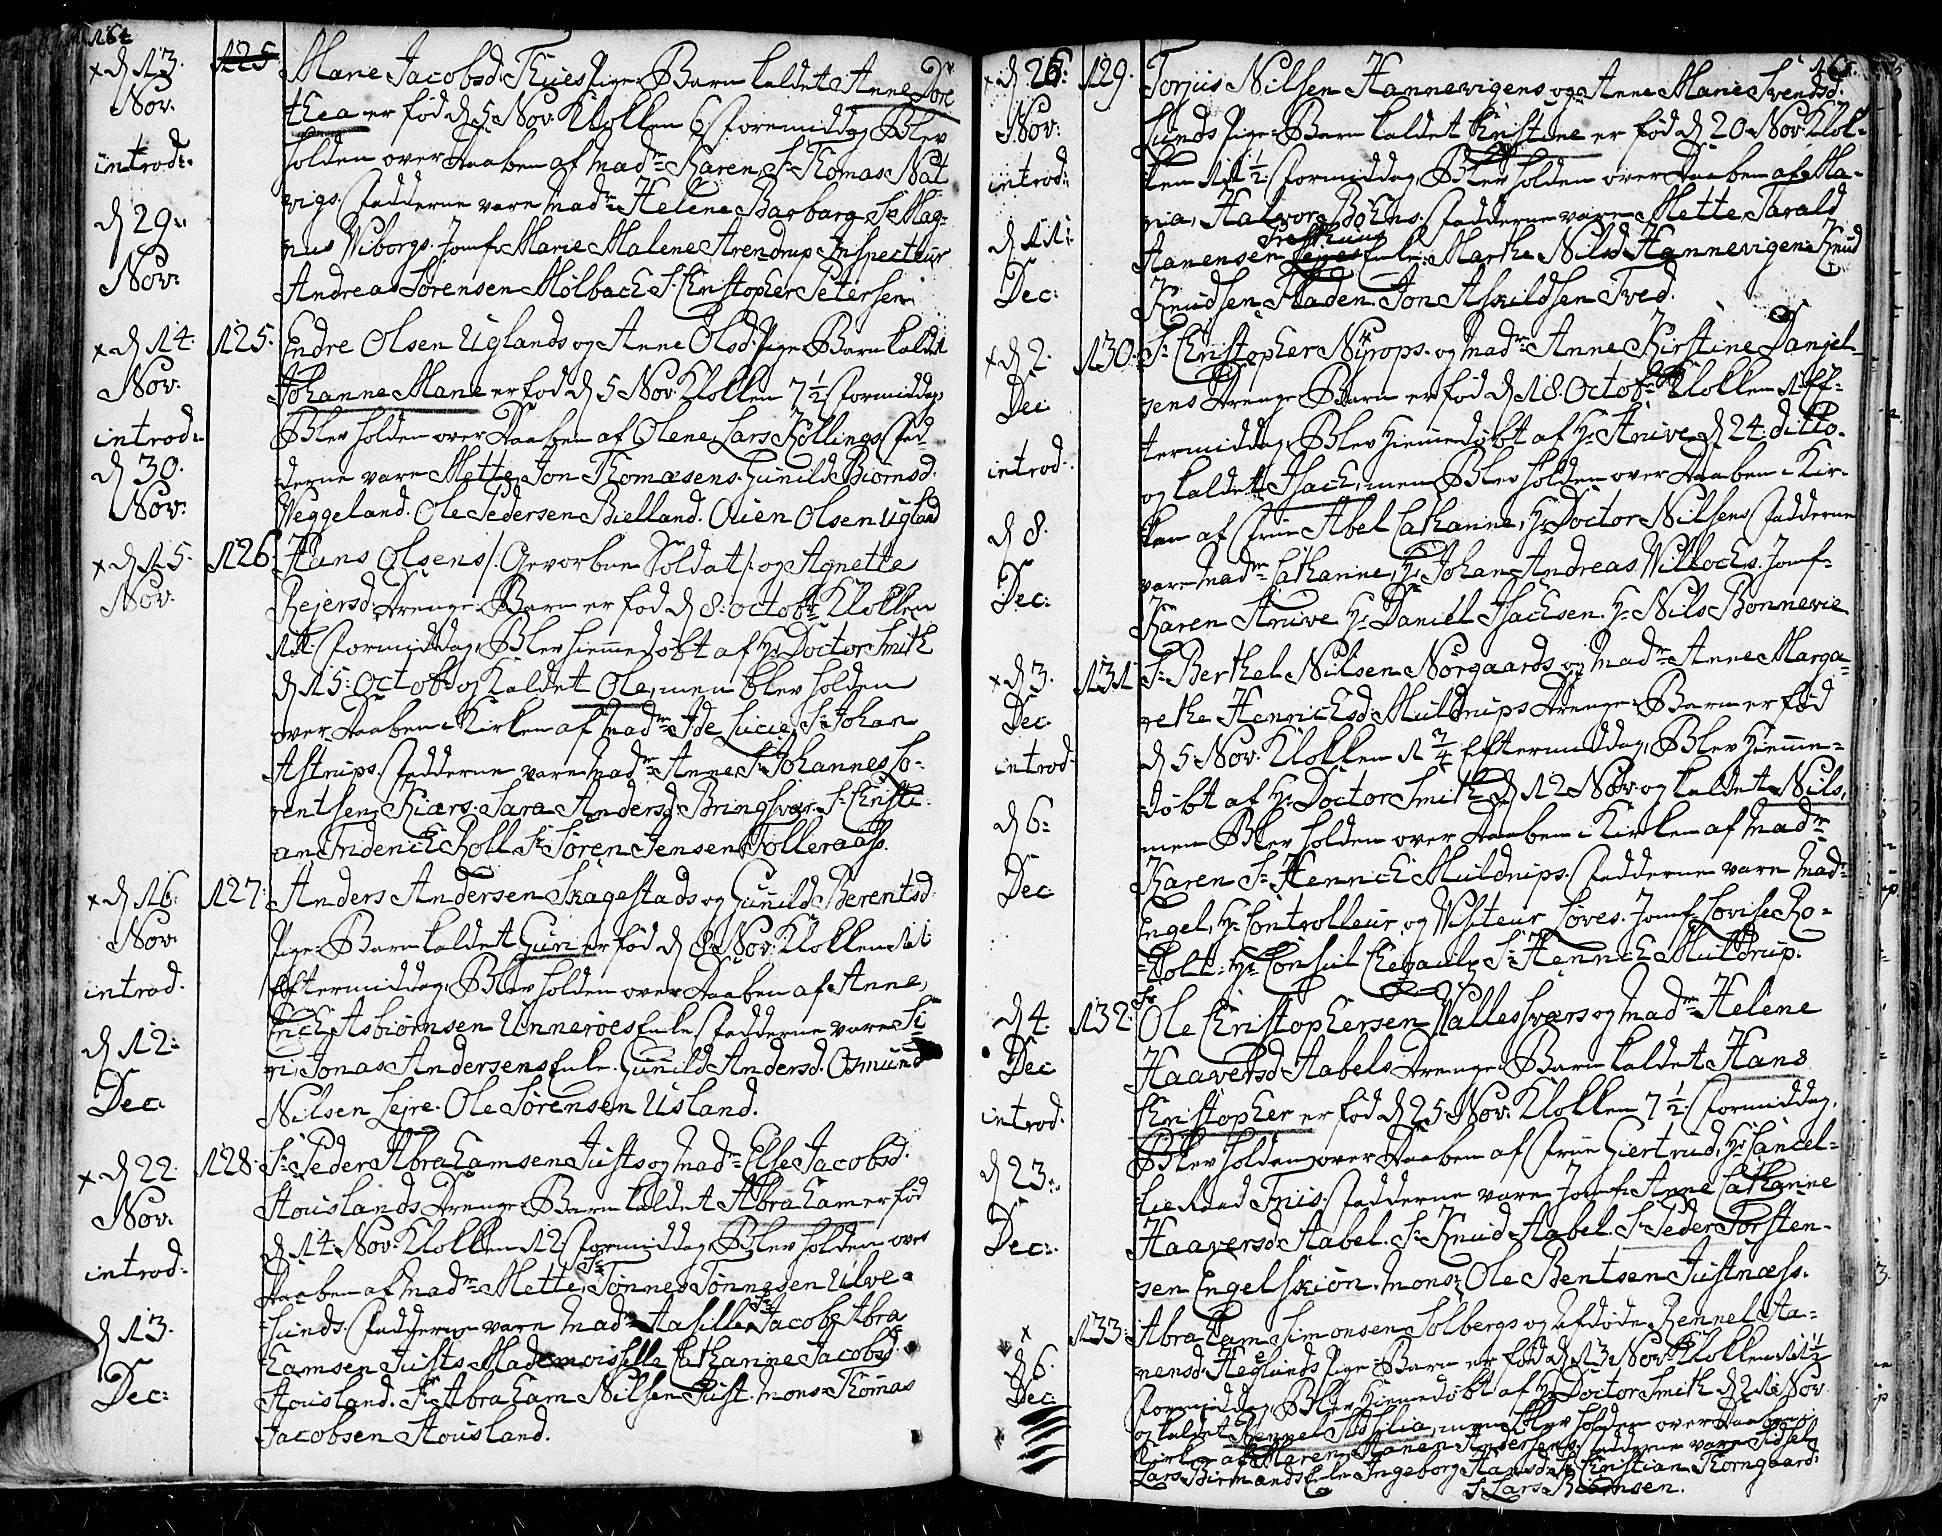 164
x d 13. 125 Marie Jacobsd: Thues Pige-Barn kaldet Anne Doro
Nov. thea er fød d 5 Nov: Klokken 6 Formiddag, Blev
introd: holden over Daaben af Mad: Karen Sr Thomas Nat
vigs. Fadderne vare Mad: Helene Barbara, Sr Mag-
d 29: nus Wiborgs. Jomf: Marie Malene Arendrup Inspecteur
Nov: Andreas Sørensen Mølbach Sr Christopher Petersen
x d 14. 125. Endre Olsen Uglands og Anne Olsd: Pige-Barn kaldet
Nov. Johanne Marie er fød d 5 Nov: Klokken 7 1/2 Formiddag,
introd: Blev holden over Daaben af Olene, Lars Kollings. Fad-
d 30. derne vare Mette, Jon Thomæsens. Gunild Biørnsd:
Nov: Weggeland. Ole Pedersen Bielland. Ouen Olsen Ugland
x d 15. 126. Hans Olsens /: Gevorben Soldat :/ og Agnette
Nov. Rejersd: Drenge-Barn er fød d 8: Octobr Klokken
11: Formiddag, Blev hiemmedøbt af Hr Doctor Smith
d 15: Octobr og kaldet Ole, men blev holden
over Daaben i Kirken af Mad: Ide Lucie, Sr Johan
Astrups. Fadderne vare Mad: Anne Sr Johannes Lo-
rentsen Kiærs. Sara Andersd: Bringsvær. Sr Christi-
an Friderich Roll. Sr Søren Jensen Folleraass.
x d 16. 127. Anders Andersen Skagestads og Gunild Berentsd:
Nov. Pige-Barn kaldet Guri er fød d 8 Nov: Klokken 11
introd. Eftermiddag, Blev holden over Daaben af Anne,
Erich Asbiørnsen Unnerøes Enke. Fadderne vare Si
d 12: ri, Jonas Andersens Enke. Gunild Andersd. Osmund
Dec. Nilsen Lejre. Ole Sørensen Usland.
x d 22. 128. Sr Peder Abrahamsen Justs og Mad: Else Jacobsd:
Nov. Stouslands Drenge-Barn kaldet Abraham er fød
d 14 Nov: Klokken 12 Formiddag, Blev holden over
introd: Daaben af Mad: Mette, Sr Tønnes Tønnesen Ulve-
sunds. Fadderne vare Mad: Aasille, Sr Jacob Abra
d 13. hamsen Justs. Mademoiselle Catharine Jacobsd:
Dec: Stousland. Sr Abraham Nilsen Just. Mons: Thomas
Jacobsen Stousland.
165.
x d 26: 129. Torjus Nilsen Hannevigens og Anne Marie Svendsd:
Nov: Lunds Pige-Barn kaldet Kristine er fød d 20 Nov: Klok-
introd: ken 11 1/2 Formiddag, Blev holden over Daaben af Ma-
ria, Halvor Bøhns. Fadderne vare Mette Tarald
d 11: Aanensen Enke. Marthe Nilsd: Hannevigen. Knud
Dec: Knudsen Fladen. Jon Askildsen Tved.
x d 2. 130. Sr Christopher Nyrops og Mad: Anne Kirstine Daniel-
Dec: sens Drenge-Barn er fød d 18. Octobr Klokken 1 Ef-
termiddag, Blev hiemmedøbt af Hr Arive d 24 ditto.
introd. og kaldet Isach, men Blev holden over Daaben i Kir-
d 8. ken af Frue Abel Cathanine, Hr Doctor Nilsens. Fadderne
vare Mad: Cathanine, Hr Johan Andreas Willochs. Jomf:
Dec: Karen Arive. Hr Daniel Isachsen. Hr Nils Bonnevie
x d 3. 131. Sr Berthel Nilsen Nørgaards og Mad: Anne Marga-
Dec: rethe Henrichsd: Muldrups Drenge-Barn er fød
d 5 Nov: Klokken 1 3/4 Eftermiddag, Blev hiemme-
introd. døbt af Hr Doctor Smith d 12 Nov: og kaldet Nils,
d 6: men Blev holden over Daaben i Kirken af Mad:
Dec: Karen Sr Henrich Muldrups. Fadderne vare Mad:
Engel, Hr Controlleur og Visiteur Løves. Jomf: Lovise Ro-
bolt. Hr Consul Sr Henrich Muldrup.
d 4. 132. Sr Ole Christophersen Wallesværs og Mad: Helene
Dec. Haaversd: Aabels Drenge-Barn kaldet Hans
introd. Christopher er fød d 25 Nov: Klokken 7 1/2 Formiddag,
Blev holden over Daaben af Frue Giertrud, Hr Cancel-
d 23: lie Raad Friis. Fadderne vare Jomf: Anne Cathanine
Dec: Haaversd: Aabel. Sr Knud Aabel. Sr Peder Torsten-
sen Engelskiøn. Mons: Ole Bentsen Justnæss.
x d 6. 133. Abraham Simonsen Solbergs og Afdøde Rennel Aa-
Dec: nensd: Heglands Pige-Barn er fød d 13 Nov: Klokken 11 1/2
Formiddag, Blev hiemmedøbt af Hr Doctor Smith d 21 Nov.
og kaldet Rennel men blev holden over Daaben i
Kirken af Maren, Aanen Andersens. Fadderne vare Sidsel,
Lars Enke. Ingeborg Hansd: Sr Christian Thorngaard.
Sr Lars